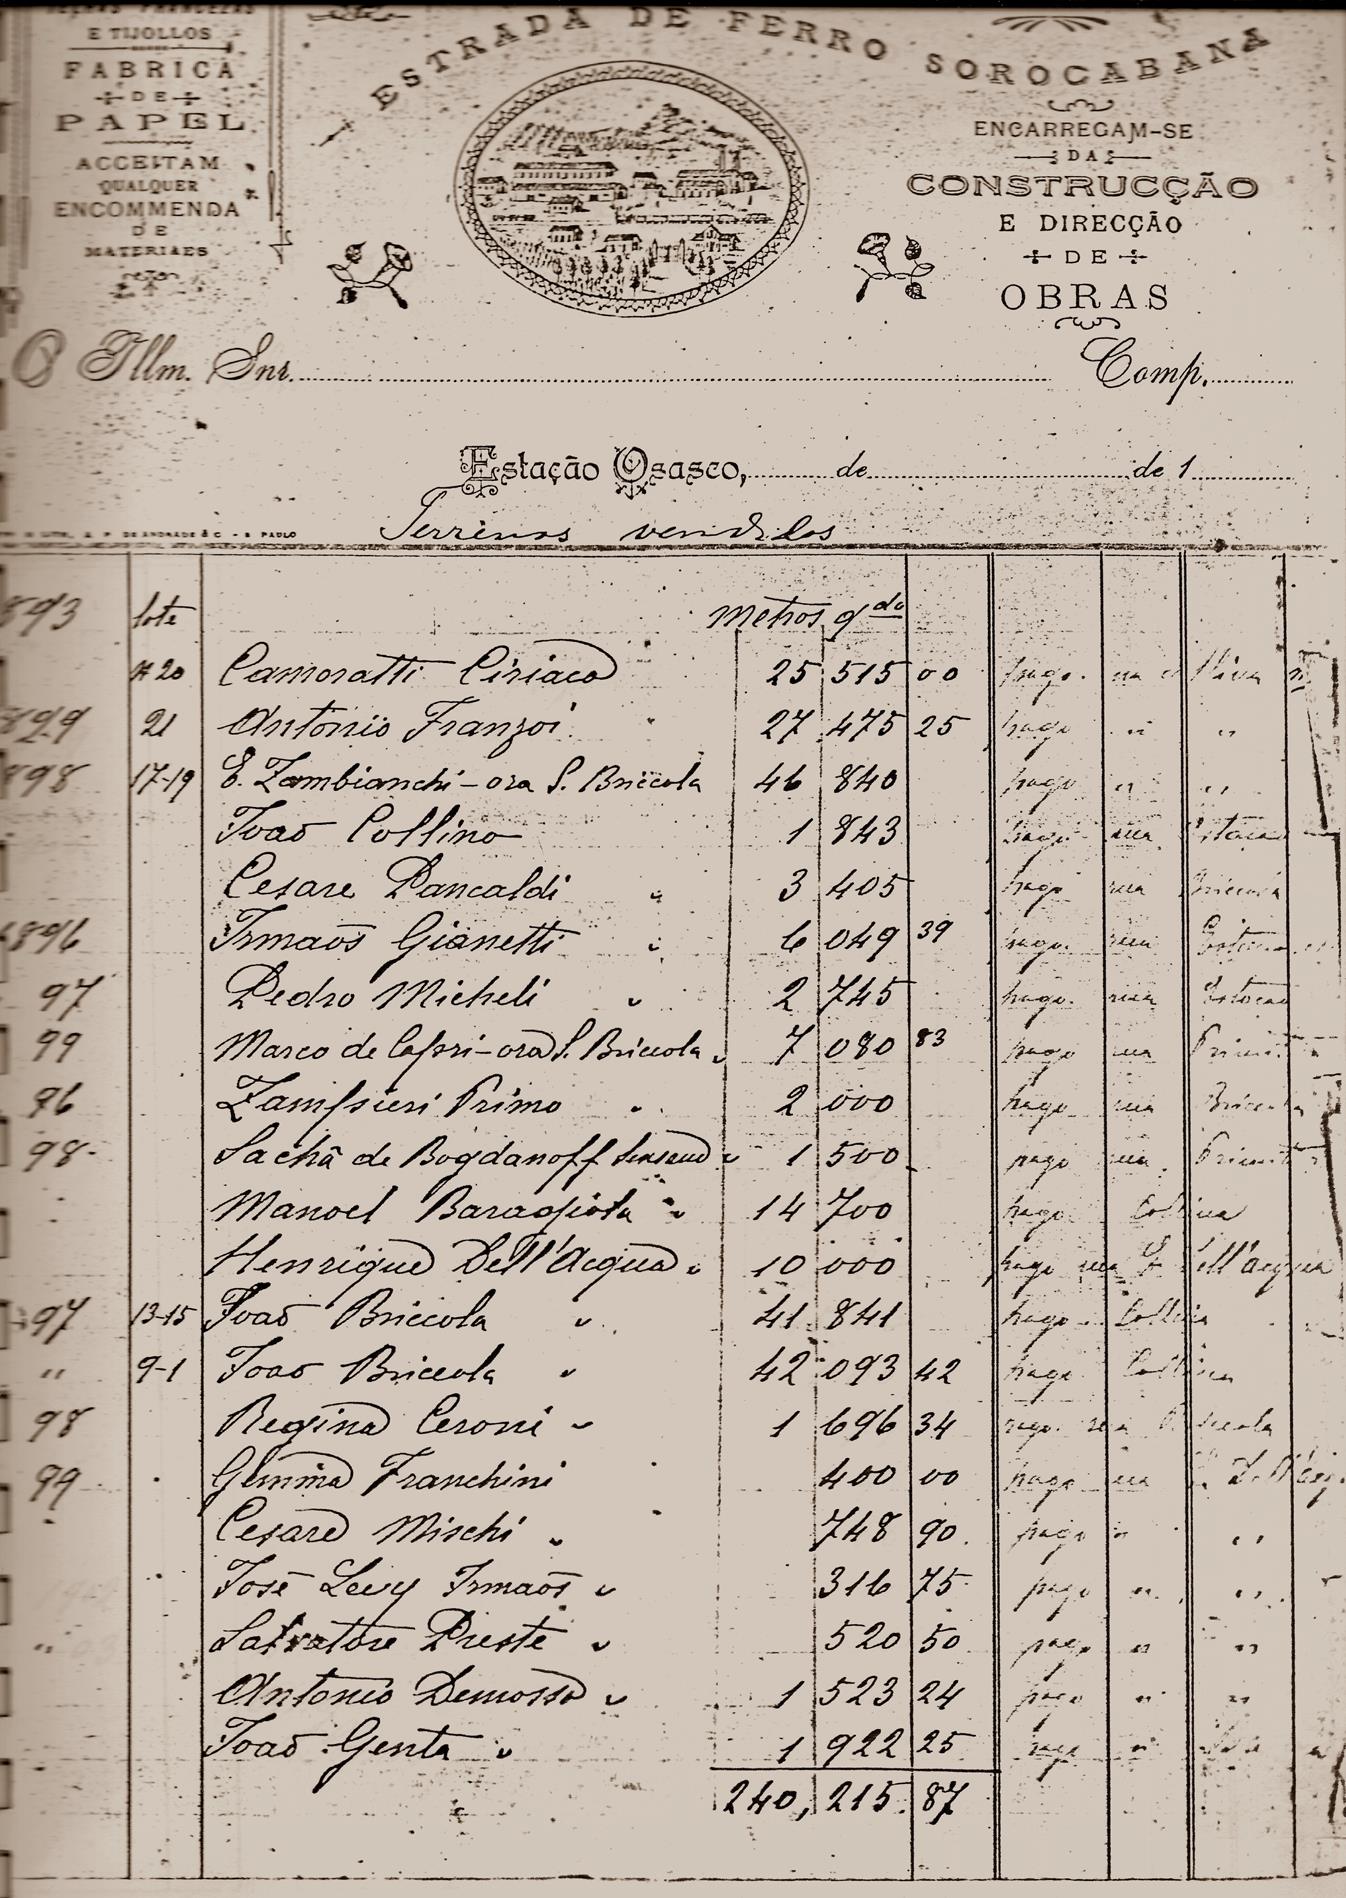 TELHAS FRANCEZAS
E TIJOLLOS
FABRICA
DE
PAPEL
ACCEITAM
QUALQUER
ENCOMMENDA
DE
MATERIAES
ESTRADA DE FERRO SOROCABANA
ENCARREGAM-SE
DA
CONSTRUCÇÃO
E DIRECÇÃO
DE
OBRAS
O Illm. Snr. Comp.
Estação Osasco, de de 1
DE ANDRADE & C - S PAULO
Terrenos vendidos
893 lote Metros qdo
20 Camoratti Ciriaco 25 515 00 pago
899 21 Antonio Franzoi 27 475 25 pago " "
898 17-19 E. Zambianchi - ora S. Briccola 46 840 pago " "
João Collino 1 843 pago rua Estação
Cesare Pancaldi " 3 405 pago rua Briccola
1896 Irmãos Gianetti " 6 049 39 pago rua
97 Pedro Micheli " 2 745 pago rua Estação
99 Marco de Capri - ora S. Briccola " 7 080 83 pago rua
96 Zampsieri Primo " 2 000 pago rua Briccola
98 Sachã de Bogdanoff Sensaud " 1 500 pago rua
Manoel Baragiola " 14 700 pago Collina
Henrique Dell'Acqua " 10 000 pago rua Dell'Acqua
97 13-15 João Briccola " 41 841 pago Collina
" 9-1 João Briccola " 42 093 42 pago Collina
98 Regina Ceroni " 1 696 34 pago rua Briccola
99 Gemma Franchini 400 00 pago rua
Cesare Mischi " 748 90 pago " "
José Levy Irmãos " 316 75 pago " "
" Salvatore Preste " 520 50 pago " "
Antonio Demosso " 1 523 24 pago " "
João Genta " 1 922 25 pago "
240,215.87